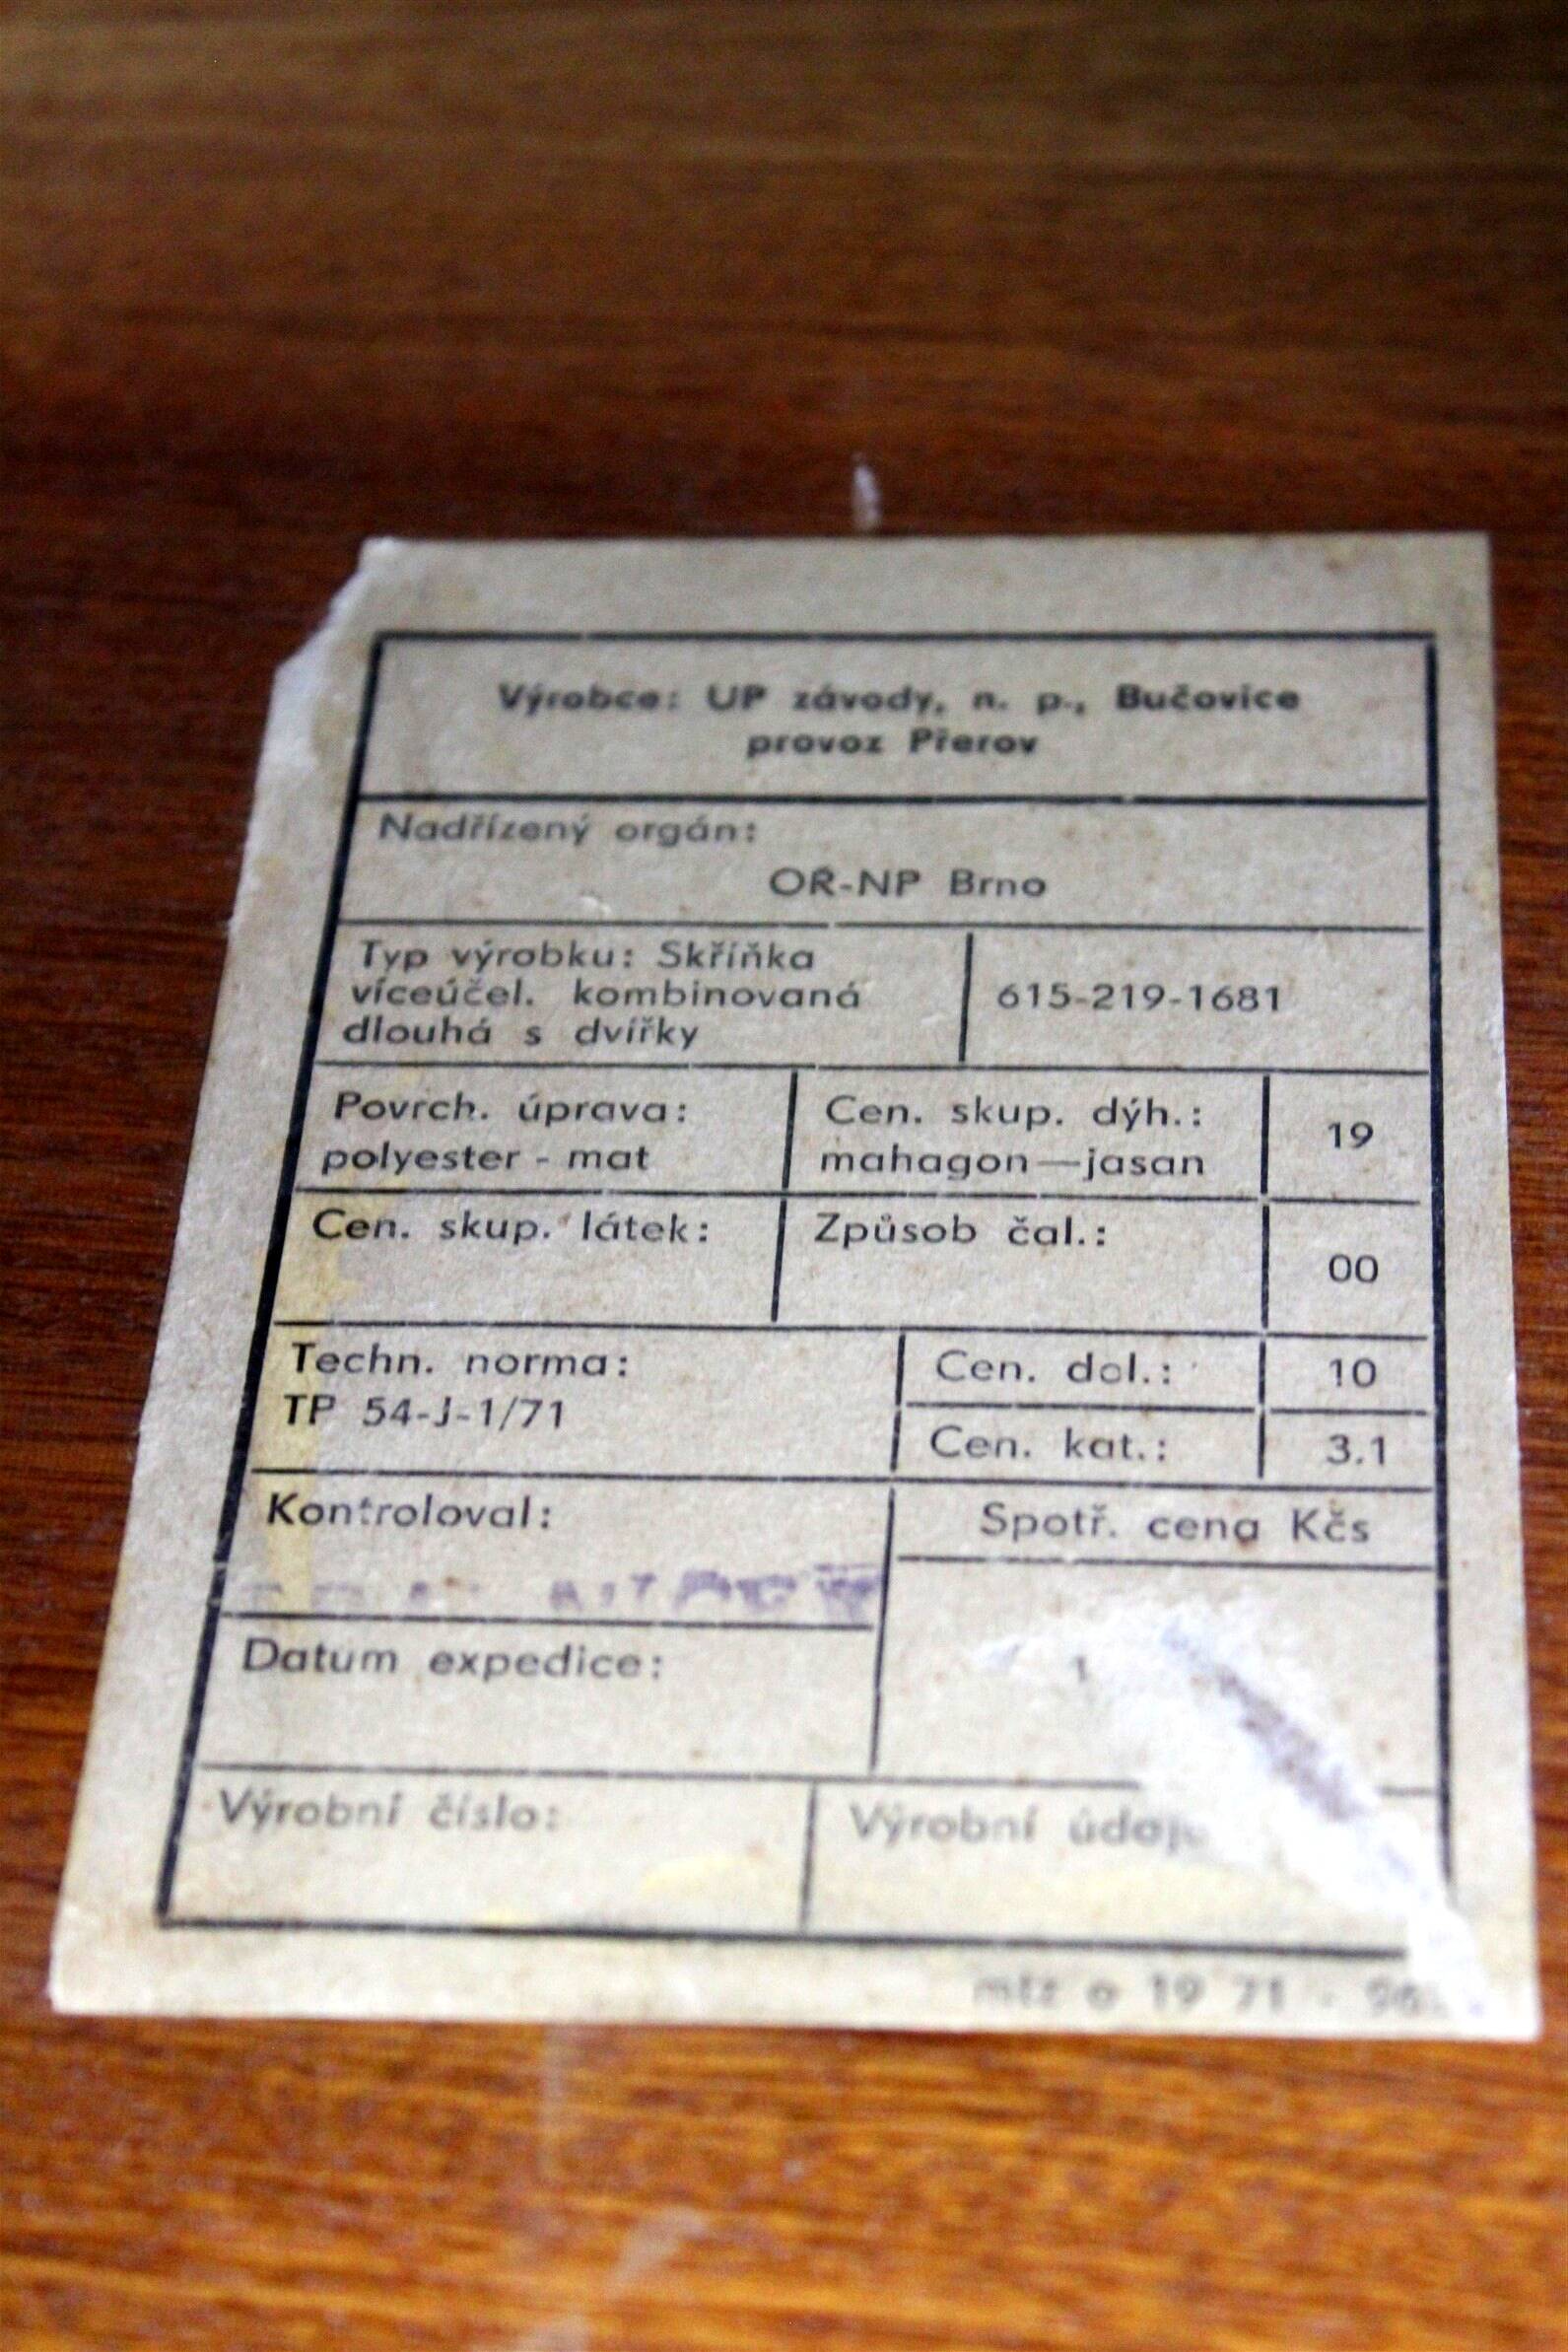 Výrobce: UP závody, n. p., Bučovice
provoz Přerov
Nadřízený orgán:
OŘ-NP Brno
Typ výrobku: Skříňka
víceúčel. kombinovaná
dlouhá s dvířky
615-219-1681
Povrch. úprava:
polyester - mat
Cen. skup. dýh.:
mahagon—jasan
19
Cen. skup. látek:
Způsob čal.:
00
Techn. norma:
TP 54-J-1/71
Cen. dol.:
10
Cen. kat.:
3.1
Kontroloval:
Spotř. cena Kčs
Datum expedice:
Výrobní číslo:
Výrobní
mtz o 19 71 -